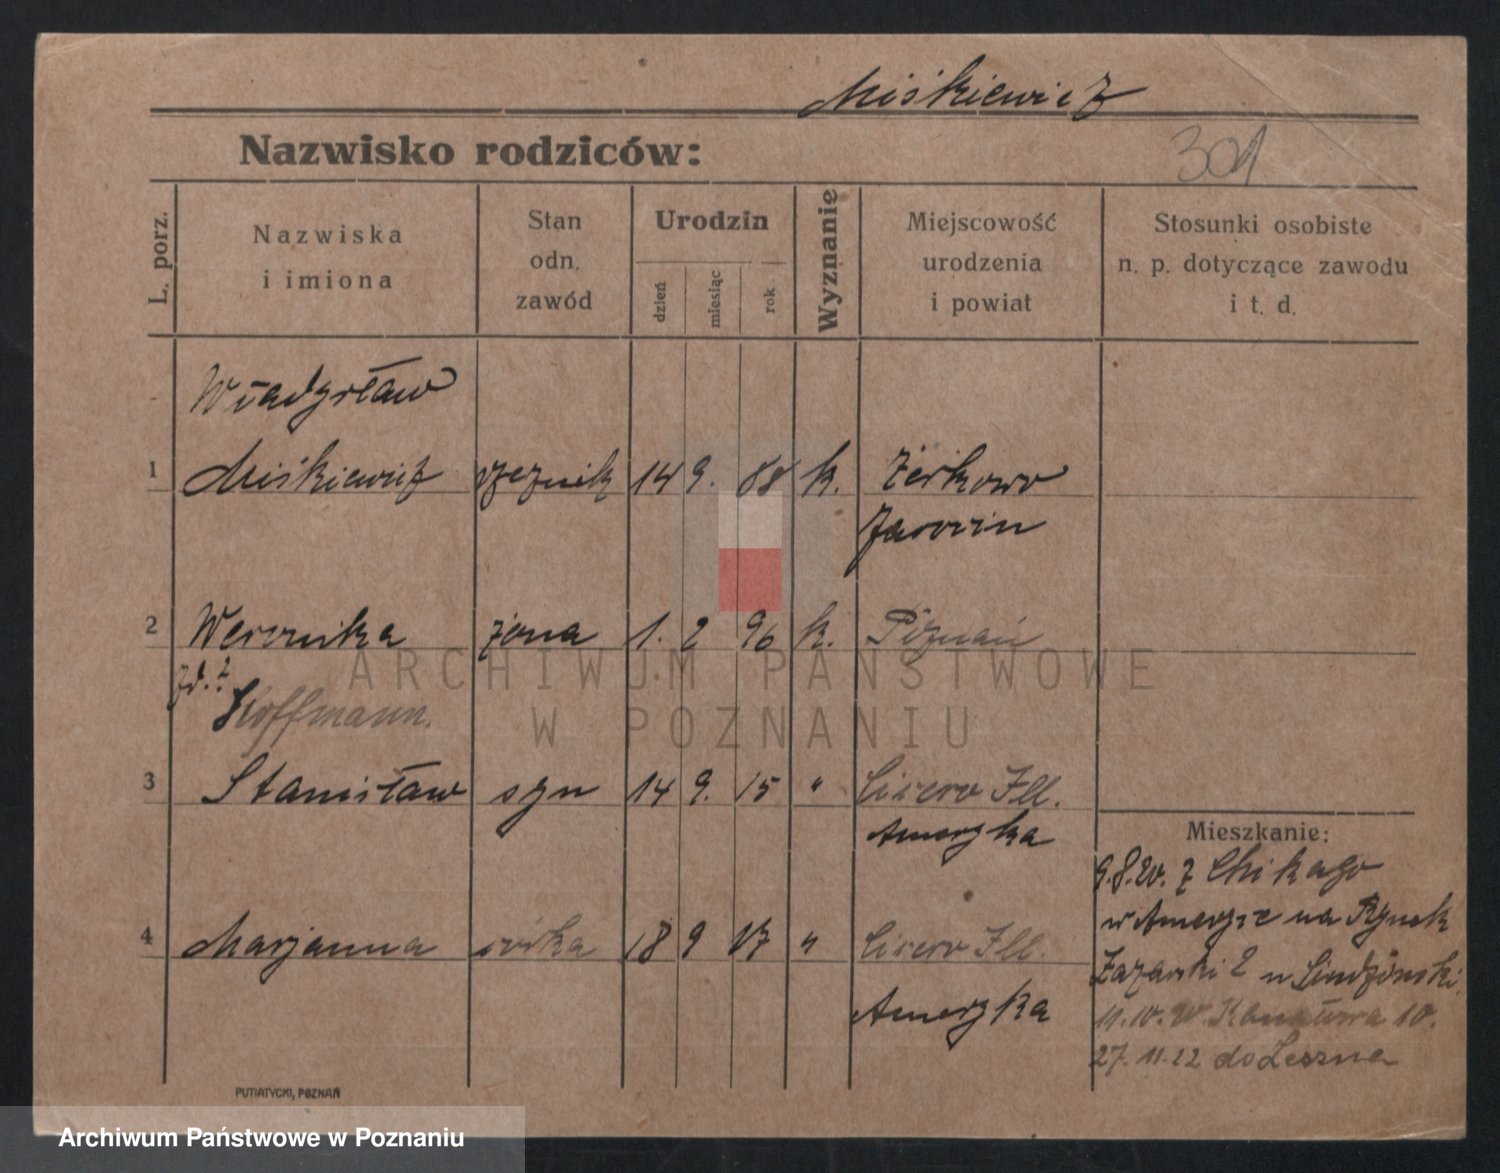 Miśkiewicz
Nazwisko rodziców:
301
L. porz.
Nazwiska
i imiona
Stan
odn.
zawód
Urodzin
dzień
miesiąc
rok
Wyznanie
Miejscowość
urodzenia
i powiat
Stosunki osobiste
n. p. dotyczące zawodu
i t. d.
Władysław
1 Miśkiewicz rzeźnik 14 9. 88 k. Żerkowo
Jarocin
2 Weronika żona 1. 2 96 k. Poznań
zd.?
Hoffmann.
3 Stanisław syn 14 9. 15 " Cicero Ill.
Ameryka
4 Marjanna córka 18 9 17 " Cicero Ill.
Ameryka
Mieszkanie:
9.8.20. z Chikago
w Ameryce na Rynek
Łazarski 2 u
11.10.20 10.
27.11.22 do Leszna
PUTIATYCKI, POZNAŃ
ARCHIWUM PAŃSTWOWE
W POZNANIU
Archiwum Państwowe w Poznaniu